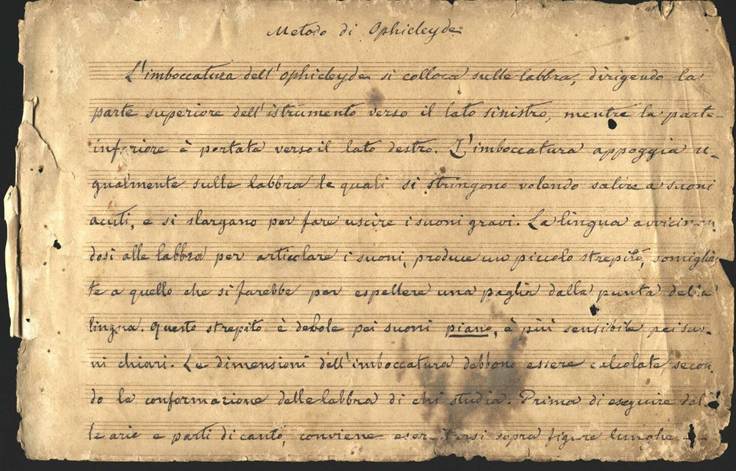 Metodo di Ophicleyde
L'imboccatura dell'Ophicleyde si colloca sulle labbra, dirigendo la
parte superiore dell'istrumento verso il lato sinistro, mentre la parte
inferiore è portata verso il lato destro. L'imboccatura appoggia u-
gualmente sulle labbra le quali si stringono volendo salire a suoni
acuti, e si slargano por fare uscire i suoni gravi. La lingua avvicinan
dosi alle labbra per articolare i suoni, produce un piccolo strepito, somiglian
te a quello che si farebbe per espellere una paglia dalla punta della
lingua. Questo strepito è debole pei suoni piano, è più sensibile pei suo-
ni chiari. Le dimensioni dell'imboccatura debbono essere calcolate secon
do la conformazione delle labbra di chi studia. Prima di eseguire del
le arie e parti di canto, conviene eser tarsi sopra figure lunghe